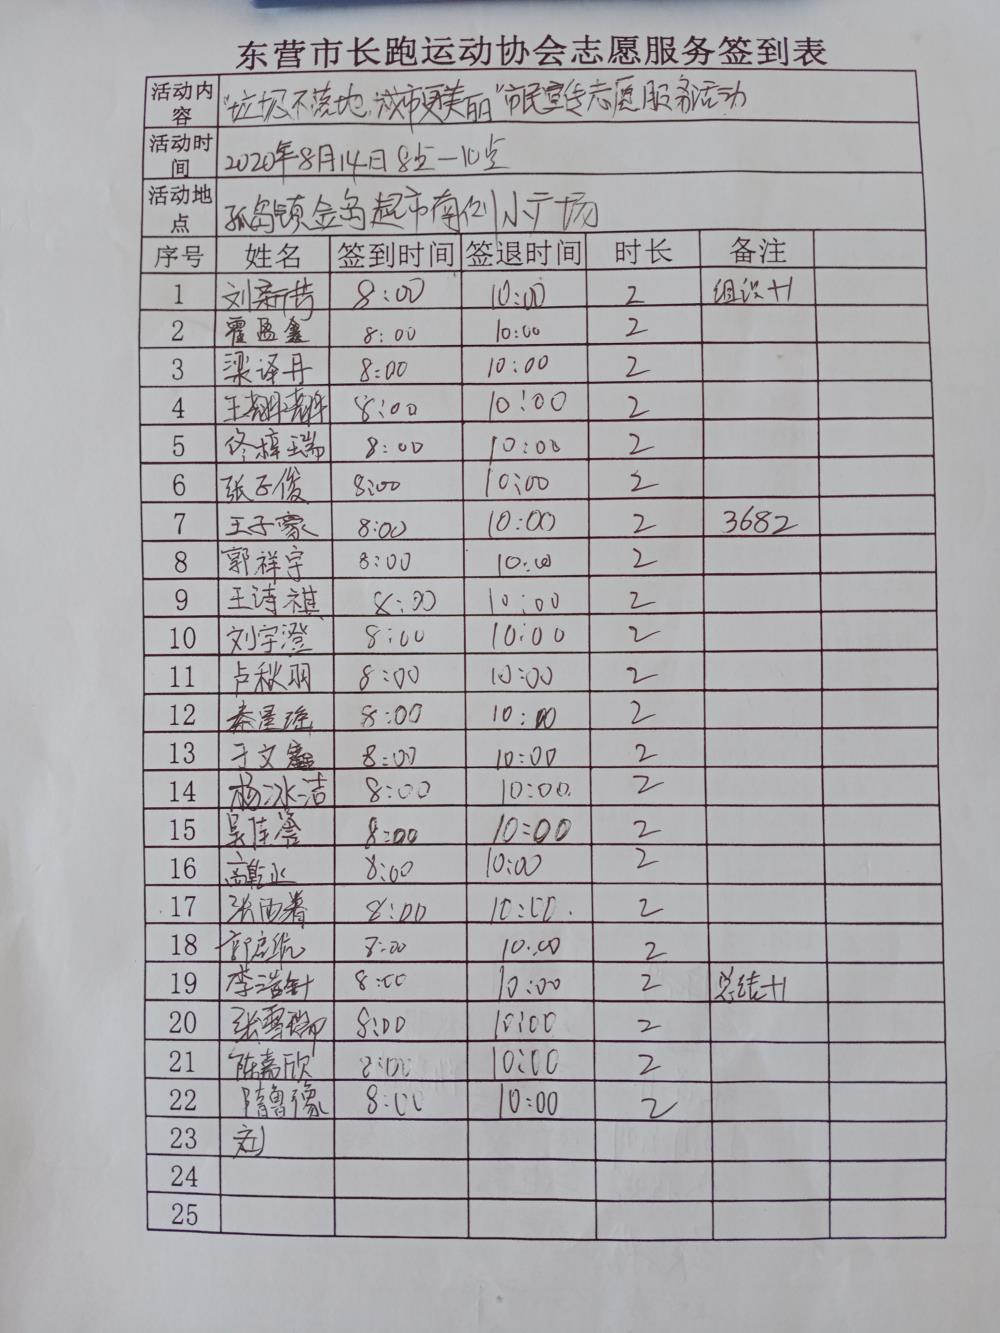 东营市长跑运动协会志愿服务签到表
活动内容 "垃圾不落地,城市更美丽"市民宣传志愿服务活动
活动时间 2020年8月14日8点—10点
活动地点 孤岛镇金岛超市南侧小广场
序号 姓名 签到时间 签退时间 时长 备注
1 刘新 8:00 10:00 2 组织+1
2 霍盈鑫 8:00 10:00 2
3 梁译丹 8:00 10:00 2
4 王翙翙 8:00 10:00 2
5 佟梓瑞 8:00 10:00 2
6 张子俊 8:00 10:00 2
7 王子豪 8:00 10:00 2 3682
8 郭祥宇 8:00 10:00 2
9 王诗祺 8:00 10:00 2
10 刘宇澄 8:00 10:00 2
11 卢秋羽 8:00 10:00 2
12 秦星瑶 8:00 10:00 2
13 于文鑫 8:00 10:00 2
14 杨冰洁 8:00 10:00 2
15 吴佳 8:00 10:00 2
16 高乾 8:00 10:00 2
17 张 8:00 10:00 2
18 郭 8:00 10:00 2
19 李浩 8:00 10:00 2 总结+1
20 张雪 8:00 10:00 2
21 陈嘉欣 8:00 10:00 2
22 隋鲁豫 8:00 10:00 2
23 刘
24
25